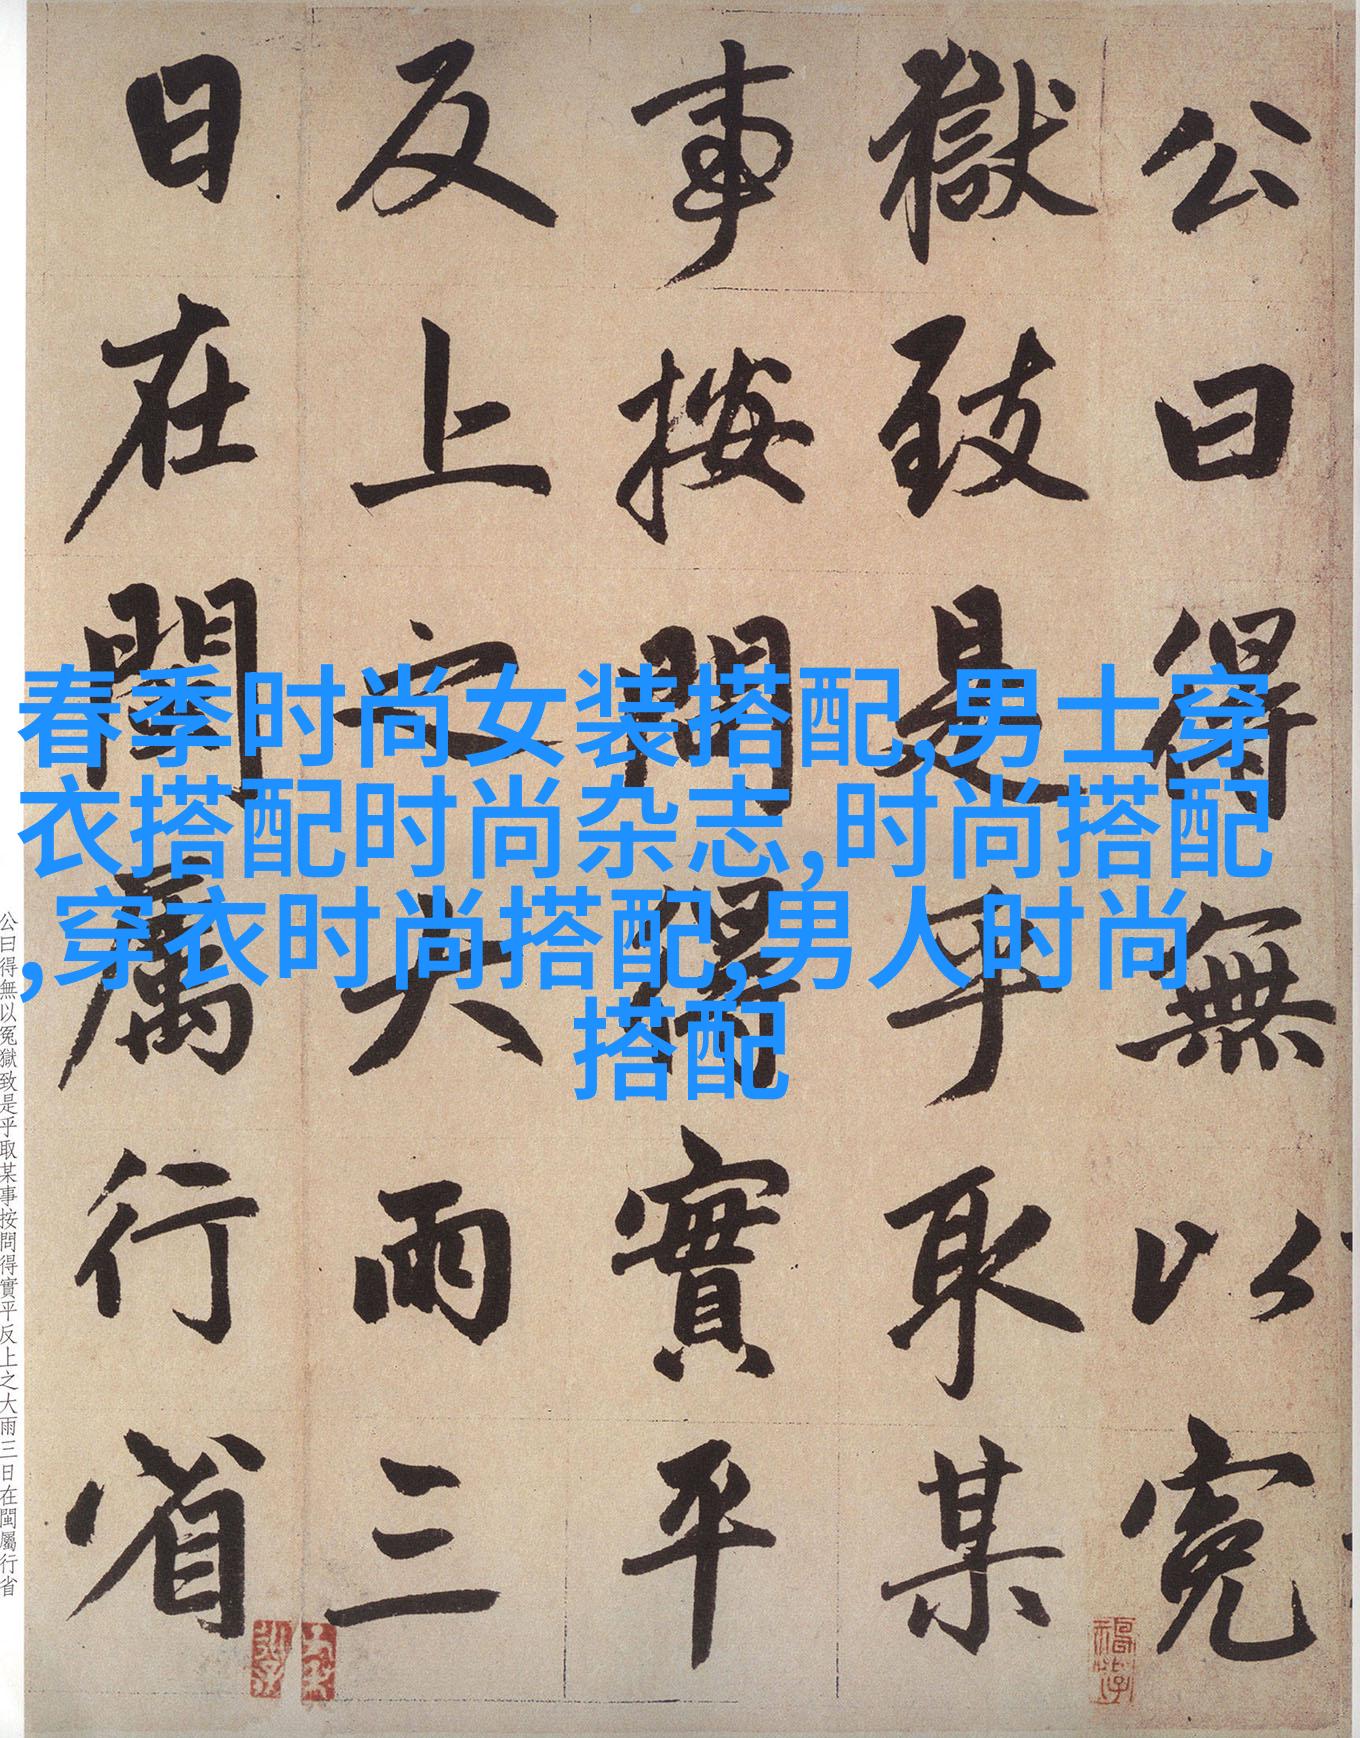 公曰得無以冤
獄致是乎取某
事按問得實平
反上之大雨三
日在閩屬行省
春季时尚女装搭配,男士穿
衣搭配时尚杂志,时尚搭配
,穿衣时尚搭配,男人时尚
搭配
公曰得無以冤獄致是乎取某事按問得實平反上之大雨三日在閩屬行省